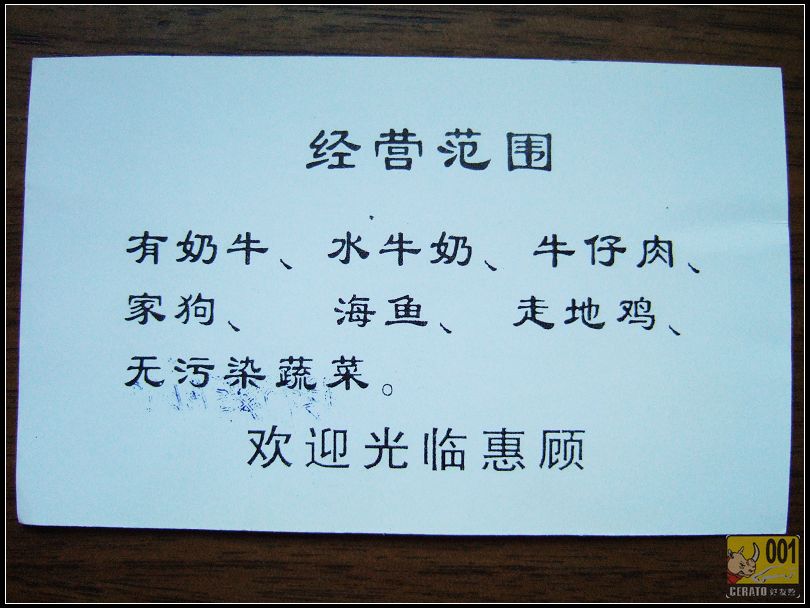 经营范围
有奶牛、水牛奶、牛仔肉、
家狗、 海鱼、 走地鸡、
无污染蔬菜。
欢迎光临惠顾
001
CERATO